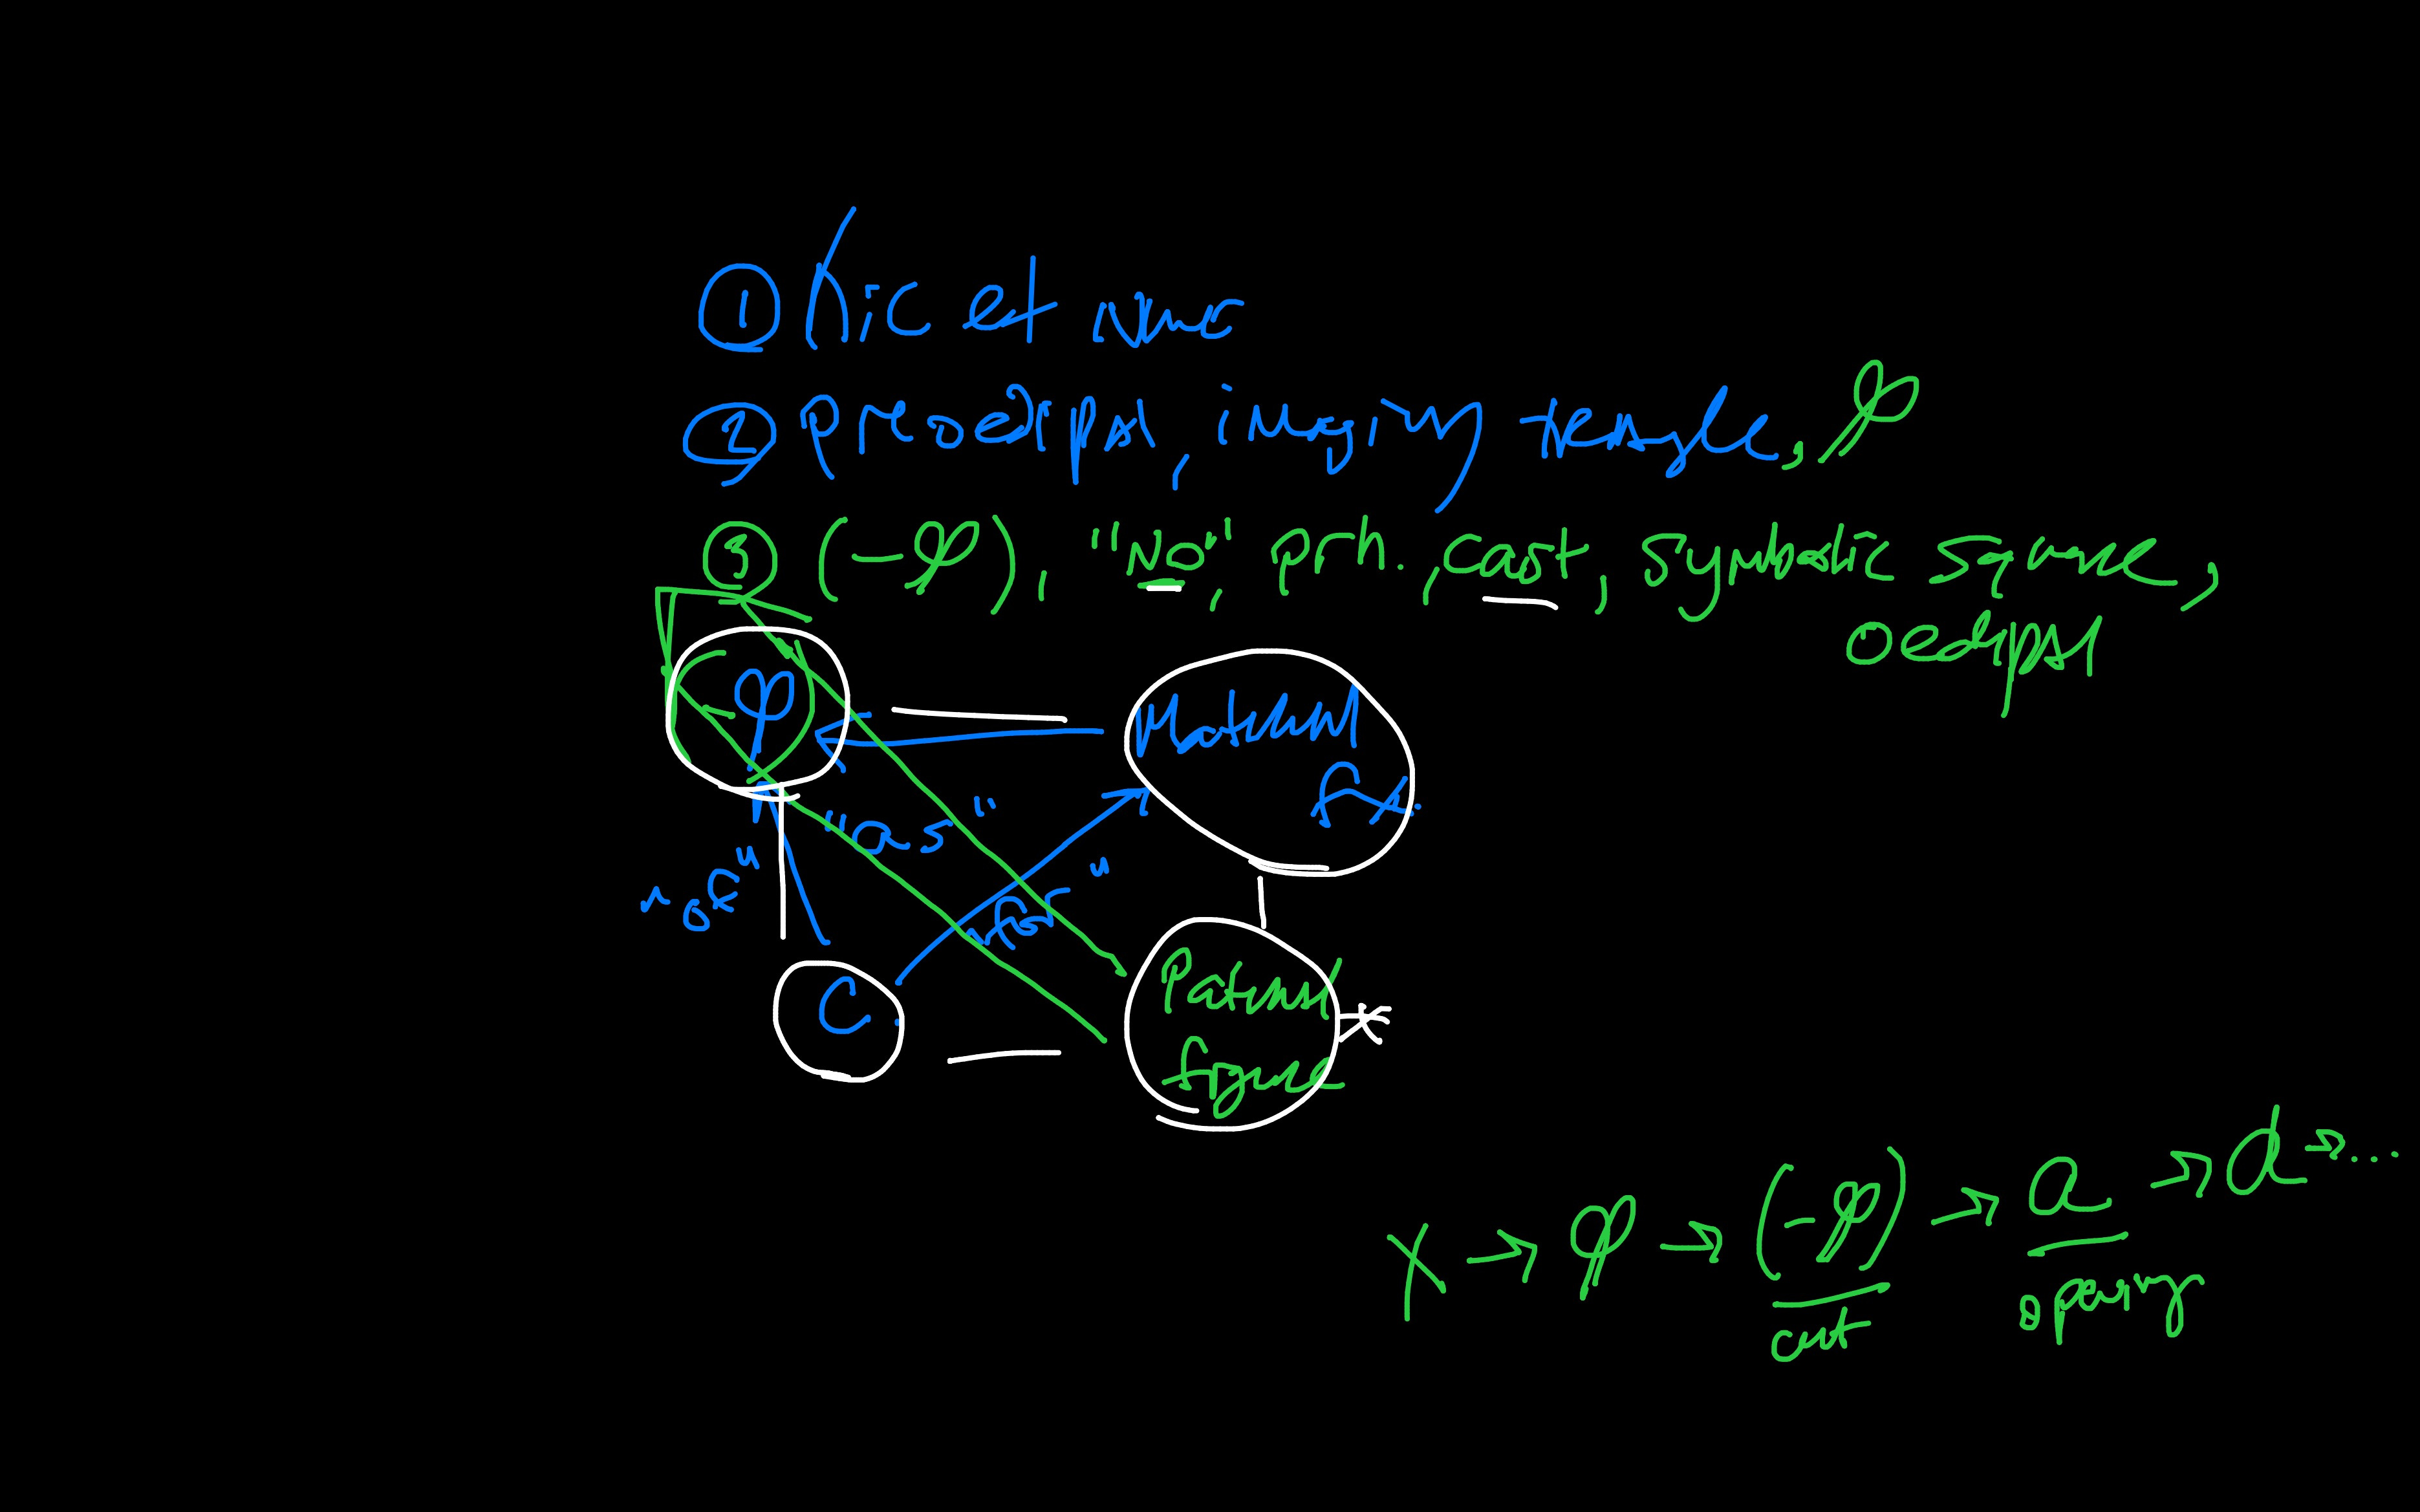 ① hic et nunc
② preoedipal, imaginary triangle, φ
③ (-φ), "No", pth., cast, symbolic square,
oedipal
φ
Maternal
fx.
"as"
"of"
"for"
C
Paternal
figure
X → φ → (-φ) → a → d → ...
cut
opening